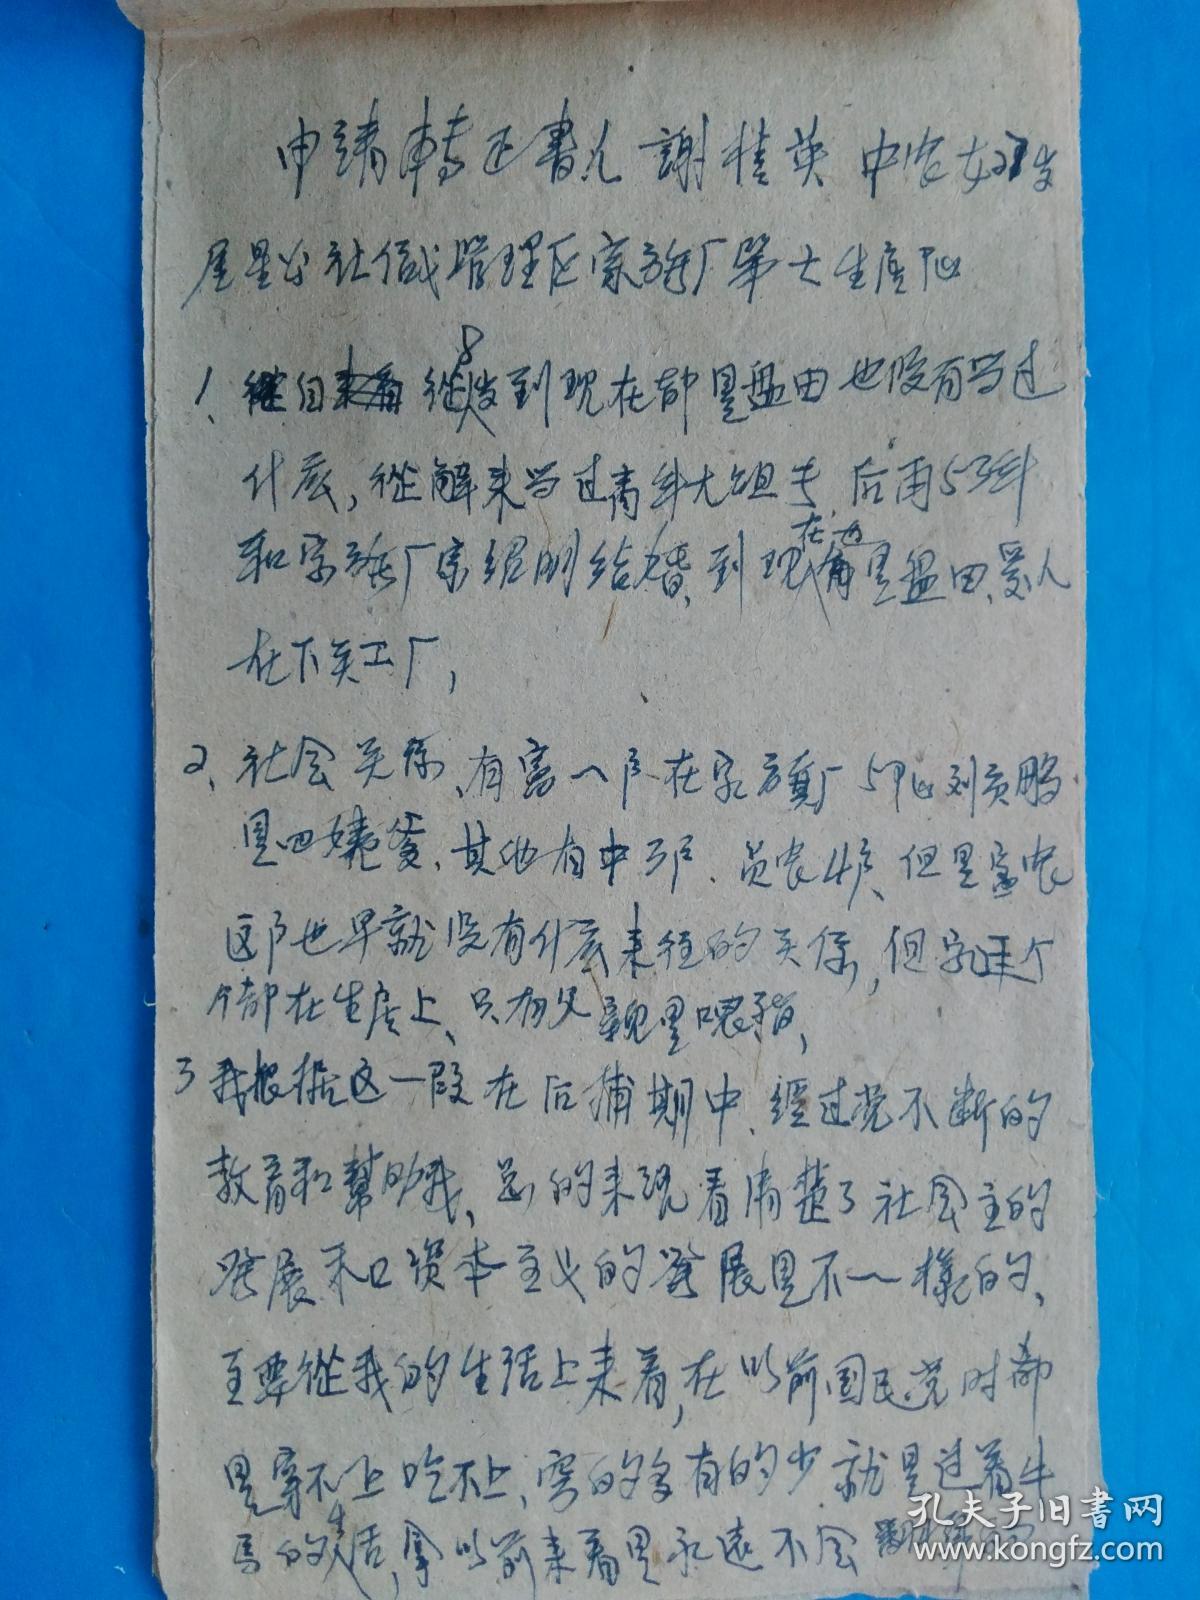 申請轉正書人 謝桂英 中农女27岁
星星公社信誠管理区家施厂第七生産队
1、自 從8岁到现在都是盘田也没有当过
什底，從解来当过青年大组长 后由53年
和字施厂字绍明结婚、到现在也是盘田、爱人
在下关工厂，
2、社会关係、有富一户在字旗厂5队刘贡鹏
是四姨爹、其他有中3户、贫农4户、但是富农
这户也早就没有什底来往的关係，但家庭个
个都在生産上、只有父親是喂猪，
3 我根据这一段在后捕期中、經过党不断的
教育和幫助我，总的来说看清楚了社会主的
發展和资本主义的發展是不一樣的、
主要從我的生活上来着，在以前国民党时都
是穿不上吃不上、穷的多有的少就是过着牛
马的生活，拿以前来看是永远不会
孔夫子旧书网
www.kongfz.com